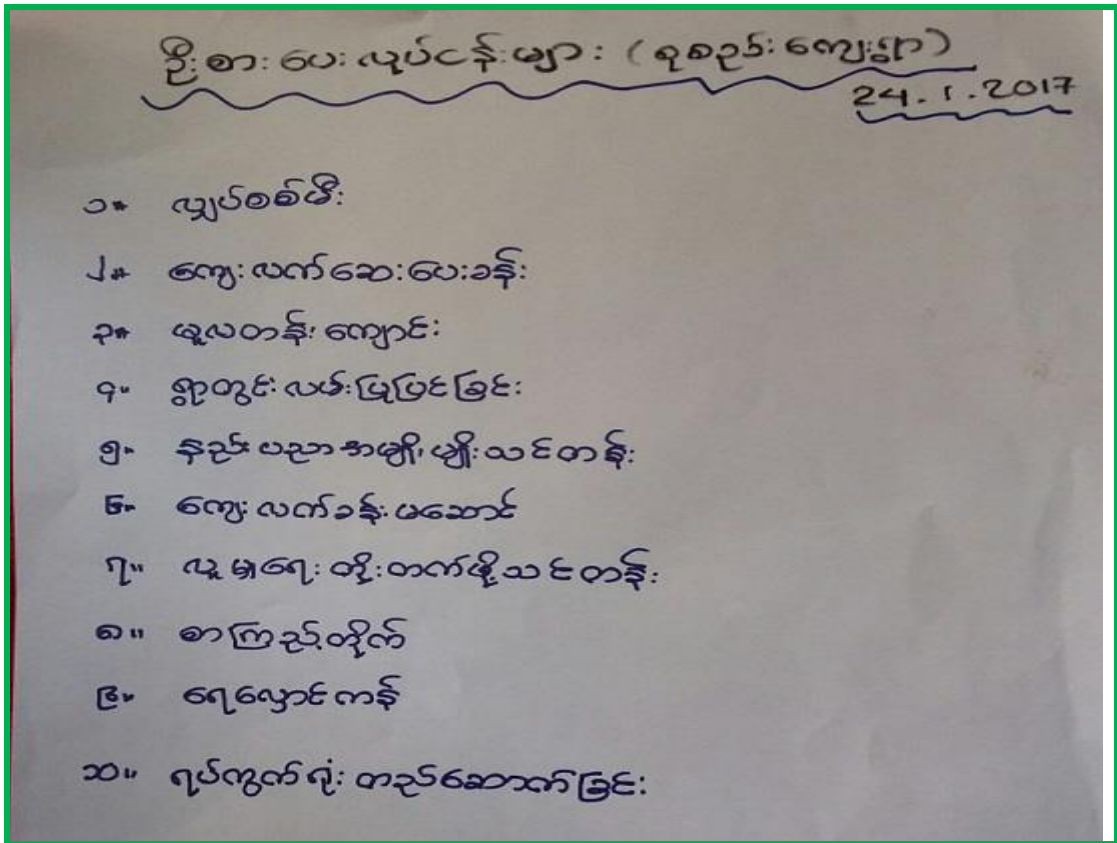 ဦးစားပေးလုပ်ငန်းများ (စုစည်းကျေးရွာ)
24.1.2017
၁။ လျှပ်စစ်မီး
၂။ ကျေးလက်ဆေးပေးခန်း
၃။ မူလတန်းကျောင်း
၄။ ရွာတွင်းလမ်းပြုပြင်ခြင်း
၅။ နည်းပညာအမျိုးမျိုးသင်တန်း
၆။ ကျေးလက်ခန်းမဆောင်
၇။ လူမှုရေးတိုးတက်ဖို့သင်တန်း
၈။ စာကြည့်တိုက်
၉။ ရေလှောင်ကန်
၁၀။ ရပ်ကွက်ရုံးတည်ဆောက်ခြင်း